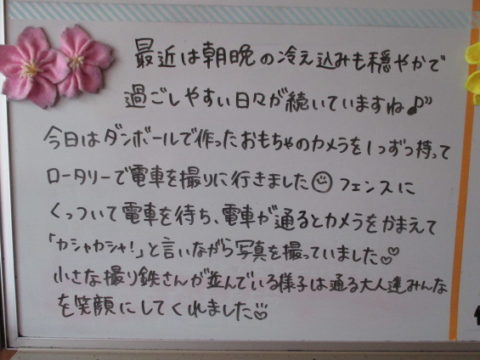 最近は朝晩の冷え込みも穏やかで
過ごしやすい日々が続いていますね♪
今日はダンボールで作ったおもちゃのカメラを1つずつ持って
ロータリーで電車を撮りに行きました☺ フェンスに
くっついて電車を待ち、電車が通るとカメラをかまえて
「カシャカシャ!」と言いながら写真を撮っていました♡
小さな撮り鉄さんが並んでいる様子は通る大人達みんな
を笑顔にしてくれました♡